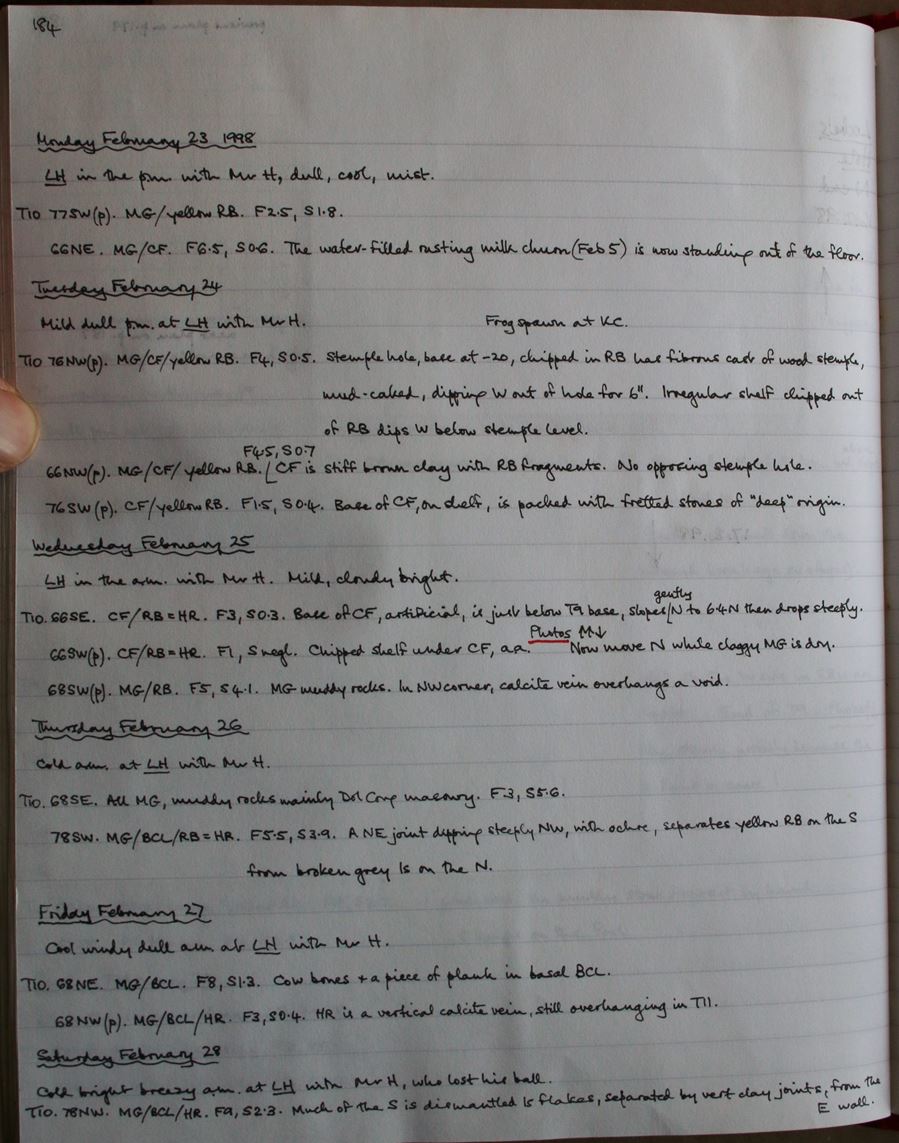 184
Monday February 23 1998
LH in the p.m. with Mr H, dull, cool, mist.
T10 77SW(p). MG/yellow RB. F2.5, S1.8.
66NE. MG/CF. F6.5, S0.6. The water-filled rusting milk churn (Feb 5) is now standing out of the floor.
Tuesday February 24
Mild dull p.m. at LH with Mr H. Frog spawn at KC.
T10 76NW(p). MG/CF/yellow RB. F4, S0.5. Stemple hole, base at -20, chipped in RB has fibrous cast of wood stemple,
mud-caked, dipping W out of hole for 6". Irregular shelf chipped out
of RB dips W below stemple level.
F4.5, S0.7
66NW(p). MG/CF/yellow RB. CF is stiff brown clay with RB fragments. No opposing stemple hole.
76SW(p). CF/yellow RB. F1.5, S0.4. Base of CF, on shelf, is packed with fretted stones of "deep" origin.
Wednesday February 25
LH in the a.m. with Mr H. Mild, cloudy bright.
gently
T10. 66SE. CF/RB=HR. F3, S0.3. Base of CF, artificial, is just below T9 base, slopes N to 6.4N then drops steeply.
Photos M↓
66SW(p). CF/RB=HR. F1, S negl. Chipped shelf under CF, a.a. Now move N while claggy MG is dry.
68SW(p). MG/RB. F5, S4.1. MG muddy rocks. In NW corner, calcite vein overhangs a void.
Thursday February 26
Cold a.m. at LH with Mr H.
T10. 68SE. All MG, muddy rocks mainly Dol Cong masonry. F3, S5.6.
78SW. MG/BCL/RB=HR. F5.5, S3.9. A NE joint dipping steeply NW, with ochre, separates yellow RB on the S
from broken grey ls on the N.
Friday February 27
Cool windy dull a.m. at LH with Mr H.
T10. 68NE. MG/BCL. F8, S1.3. Cow bones + a piece of plank in basal BCL.
68NW(p). MG/BCL/HR. F3, S0.4. HR is a vertical calcite vein, still overhanging in T11.
Saturday February 28
Cold bright breezy a.m. at LH with Mr H, who lost his ball.
T10. 78NW. MG/BCL/HR. F9, S2.3. Much of the S is dismantled ls flakes, separated by vert clay joints, from the
E wall.